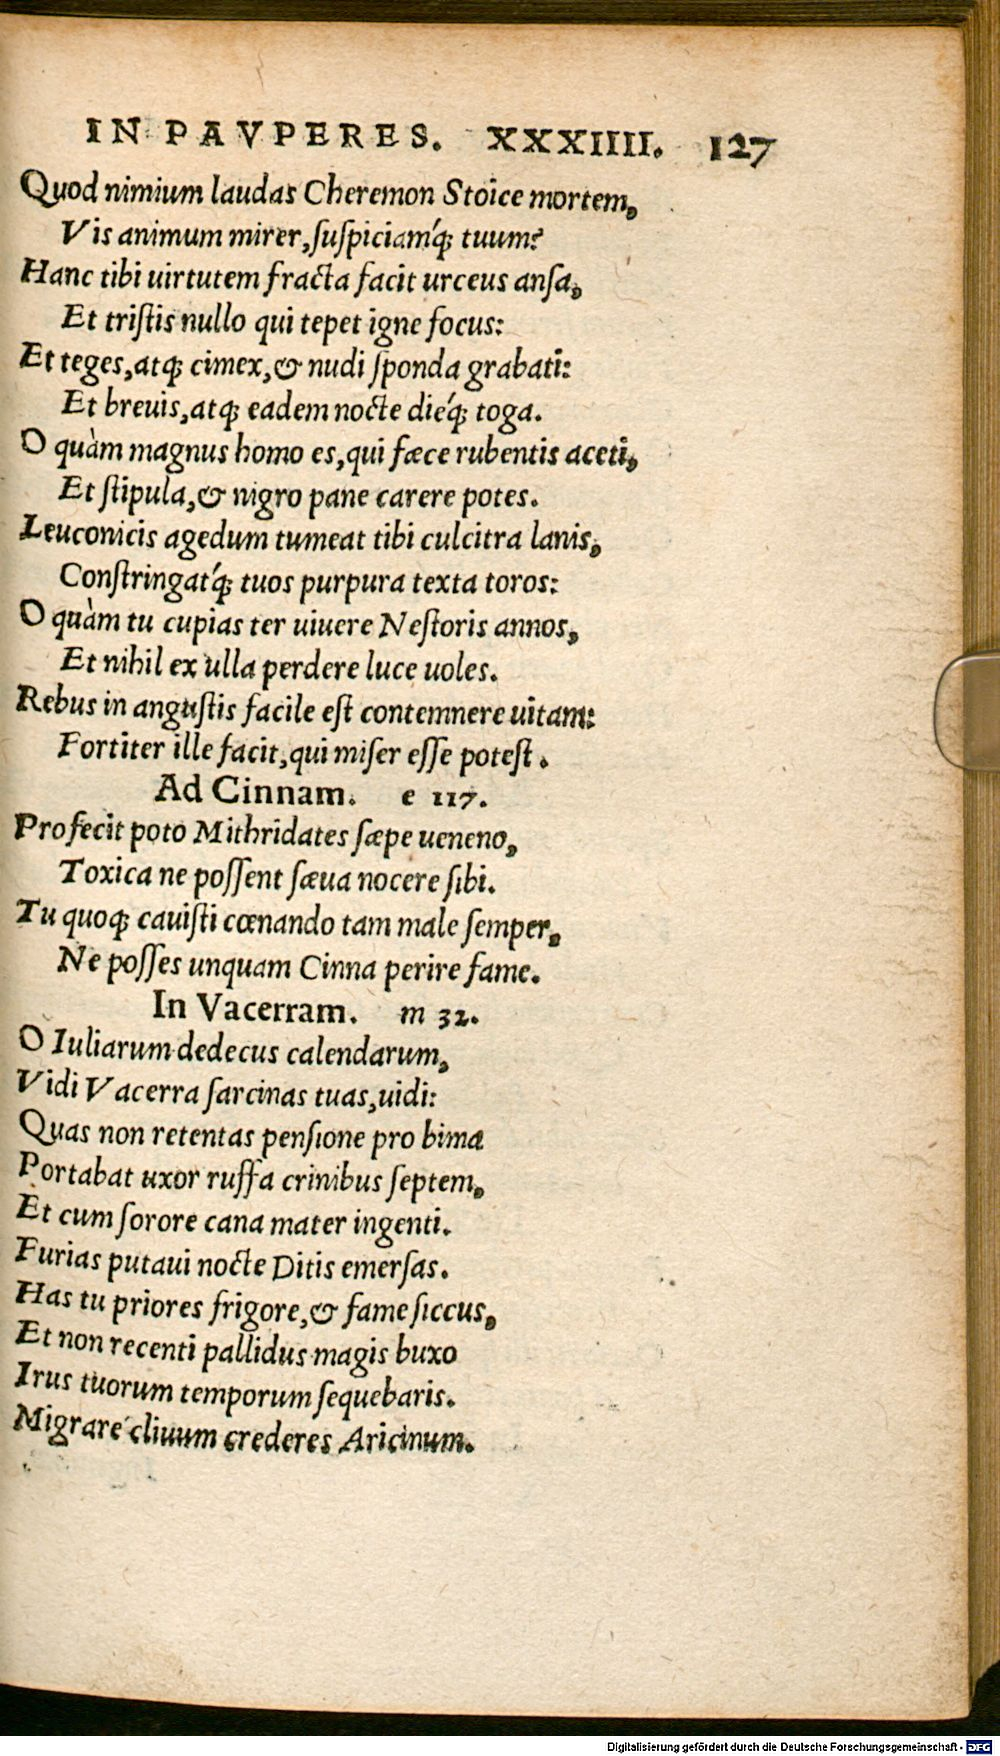 IN PAVPERES. XXXIIII. 127
Quod nimium laudas Cheremon Stoice mortem,
Vis animum mirer, ſuſpiciamq́; tuum?
Hanc tibi uirtutem fracta facit urceus anſa,
Et triſtis nullo qui tepet igne focus:
Et teges, atq; cimex, & nudi ſponda grabati:
Et breuis, atq; eadem nocte dieq́; toga.
O quàm magnus homo es, qui fæce rubentis aceti,
Et ſtipula, & nigro pane carere potes.
Leuconicis agedum tumeat tibi culcitra lanis,
Conſtringatq́; tuos purpura texta toros:
O quàm tu cupias ter uiuere Neſtoris annos,
Et nihil ex ulla perdere luce uoles.
Rebus in anguſtis facile eſt contemnere uitam:
Fortiter ille facit, qui miſer eſſe poteſt.
Ad Cinnam. e 117.
Profecit poto Mithridates ſæpe ueneno,
Toxica ne poſſent ſæua nocere ſibi.
Tu quoq; cauiſti cœnando tam male ſemper,
Ne poſſes unquam Cinna perire fame.
In Vacerram. m 32.
O Iuliarum dedecus calendarum,
Vidi Vacerra ſarcinas tuas, uidi:
Quas non retentas penſione pro bima
Portabat uxor ruffa crinibus ſeptem,
Et cum ſorore cana mater ingenti.
Furias putaui nocte Ditis emerſas.
Has tu priores frigore, & fame ſiccus,
Et non recenti pallidus magis buxo
Irus tuorum temporum ſequebaris.
Migrare cliuum crederes Aricinum.
Digitalisierung gefördert durch die Deutsche Forschungsgemeinschaft - DFG